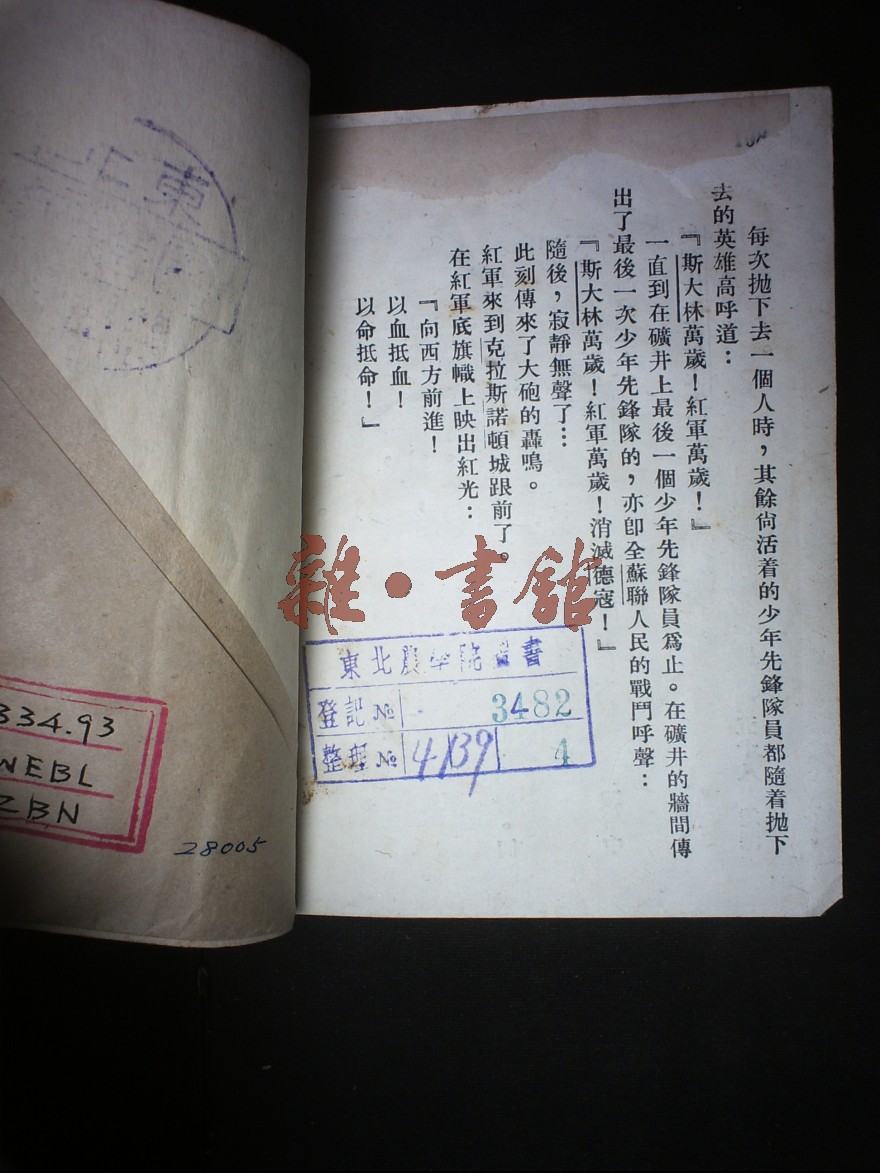 每次抛下去一個人時，其餘尙活着的少年先鋒隊員都隨着抛下
去的英雄高呼道：
『斯大林萬歲！紅軍萬歲！』
一直到在礦井上最後一個少年先鋒隊員爲止。在礦井的牆間傳
出了最後一次少年先鋒隊的，亦卽全蘇聯人民的戰鬥呼聲：
『斯大林萬歲！紅軍萬歲！消滅德寇！』
隨後，寂靜無聲了…
此刻傳來了大砲的轟鳴。
紅軍來到克拉斯諾頓城跟前了。
在紅軍底旗幟上映出紅光：
『向西方前進！
以血抵血！
以命抵命！』
雜·書館
東北農學院圖書
登記 № 3482
整理 № 4139 4
東北
334.93
WEBL
ZBN
28005